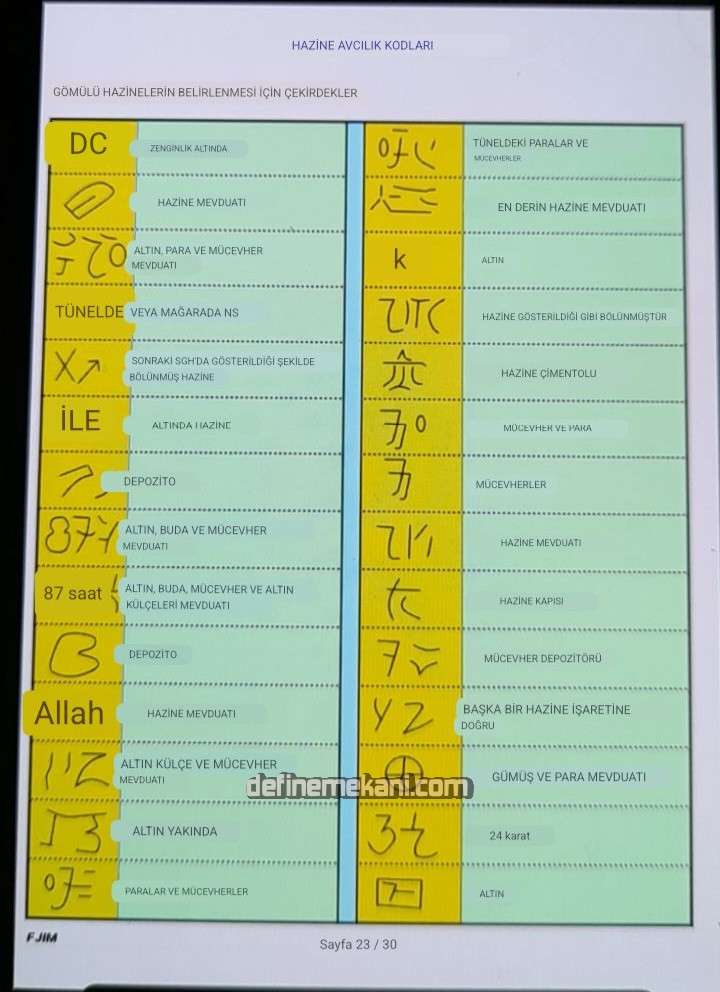 HAZİNE AVCILIK KODLARI
GÖMÜLÜ HAZİNELERİN BELİRLENMESİ İÇİN ÇEKİRDEKLER
DC
ZENGİNLİK ALTINDA
HAZİNE MEVDUATI
ALTIN, PARA VE MÜCEVHER
MEVDUATI
TÜNELDE
VEYA MAĞARADA NS
SONRAKİ SGH'DA GÖSTERİLDİĞİ ŞEKİLDE
BÖLÜNMÜŞ HAZİNE
İLE
ALTINDA HAZİNE
DEPOZİTO
ALTIN, BUDA VE MÜCEVHER
MEVDUATI
87 saat
ALTIN, BUDA, MÜCEVHER VE ALTIN
KÜLÇELERİ MEVDUATI
DEPOZİTO
Allah
HAZİNE MEVDUATI
ALTIN KÜLÇE VE MÜCEVHER
MEVDUATI
ALTIN YAKINDA
PARALAR VE MÜCEVHERLER
TÜNELDEKİ PARALAR VE
MÜCEVHERLER
EN DERİN HAZİNE MEVDUATI
k
ALTIN
HAZİNE GÖSTERİLDİĞİ GİBİ BÖLÜNMÜŞTÜR
HAZİNE ÇİMENTOLU
MÜCEVHER VE PARA
MÜCEVHERLER
HAZİNE MEVDUATI
HAZİNE KAPISI
MÜCEVHER DEPOZİTÖRÜ
BAŞKA BİR HAZİNE İŞARETİNE
DOĞRU
GÜMÜŞ VE PARA MEVDUATI
24 karat
ALTIN
definemekani.com
FJIM
Sayfa 23 / 30